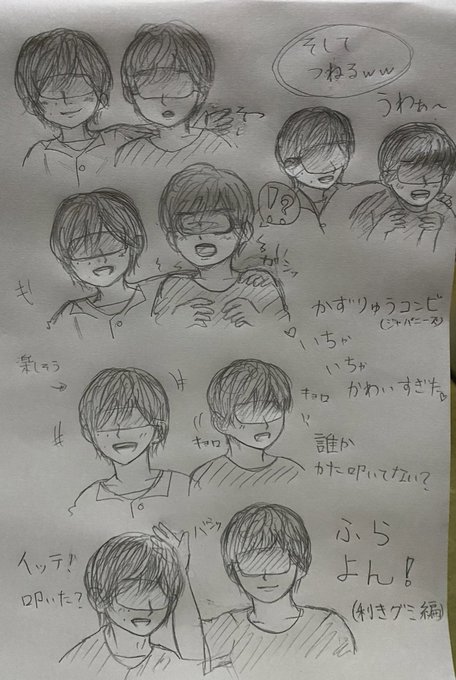 そして
つねるww
うわぁ〜
そっ
!?
ガシッ
かずりゅうコンビ
(ジャパニーズ)
いちゃ
いちゃ
かわいすぎた♡
楽しそう
キョロ
キョロ
誰か
かた叩いてない?
バシッ
イッテ!
叩いた?
ふら
よん!
(利きグミ編)